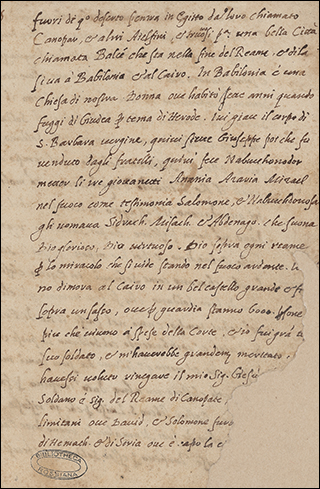 fuori di q.o deserto s'entra in Egitto da loro chiamato
Canopar, et altri Mesfini, et trovasi p.a una bella Città
chiamata Balcè che sta nella fine del Reame, et di là
si va à Babilonia et al Cairo. In Babilonia è una
Chiesa di nostra Donna ove habitò sette anni quando
fuggì di Giudea p tema di Herode. Ivi giace il corpo di
S. Barbara vergine, quivi stette Giuseppe poi che fu
venduto dagli fratelli, quivi fece Nabuchodonosor
metter li tre giovanetti Anania Azaria Misael
nel fuoco come testimonia Salomone, et Nabuchdonosor
gli nomava Sidrach, Misach, et Abdenago, che suona
Dio glorioso, Dio virtuoso, Dio sopra ogni reame
p lo miracolo che si vide stando nel fuoco ardente.
no dimora al Cairo in un bel castello grande et
sopra un sasso, ove p guardia stanno 6000 psone
più che vivono à spese della Corte, et io fui grā
suo soldato, et m'haverebbe grandem. meritato
havessi voluto rinegare il mio Sig. Giesù
Soldano è sig. del Reame di Canopate
limitani ove David, et Salomone furo
di Hemach, et di Soria ove è capo la c
BIBLIOTHECA
ROSSIANA